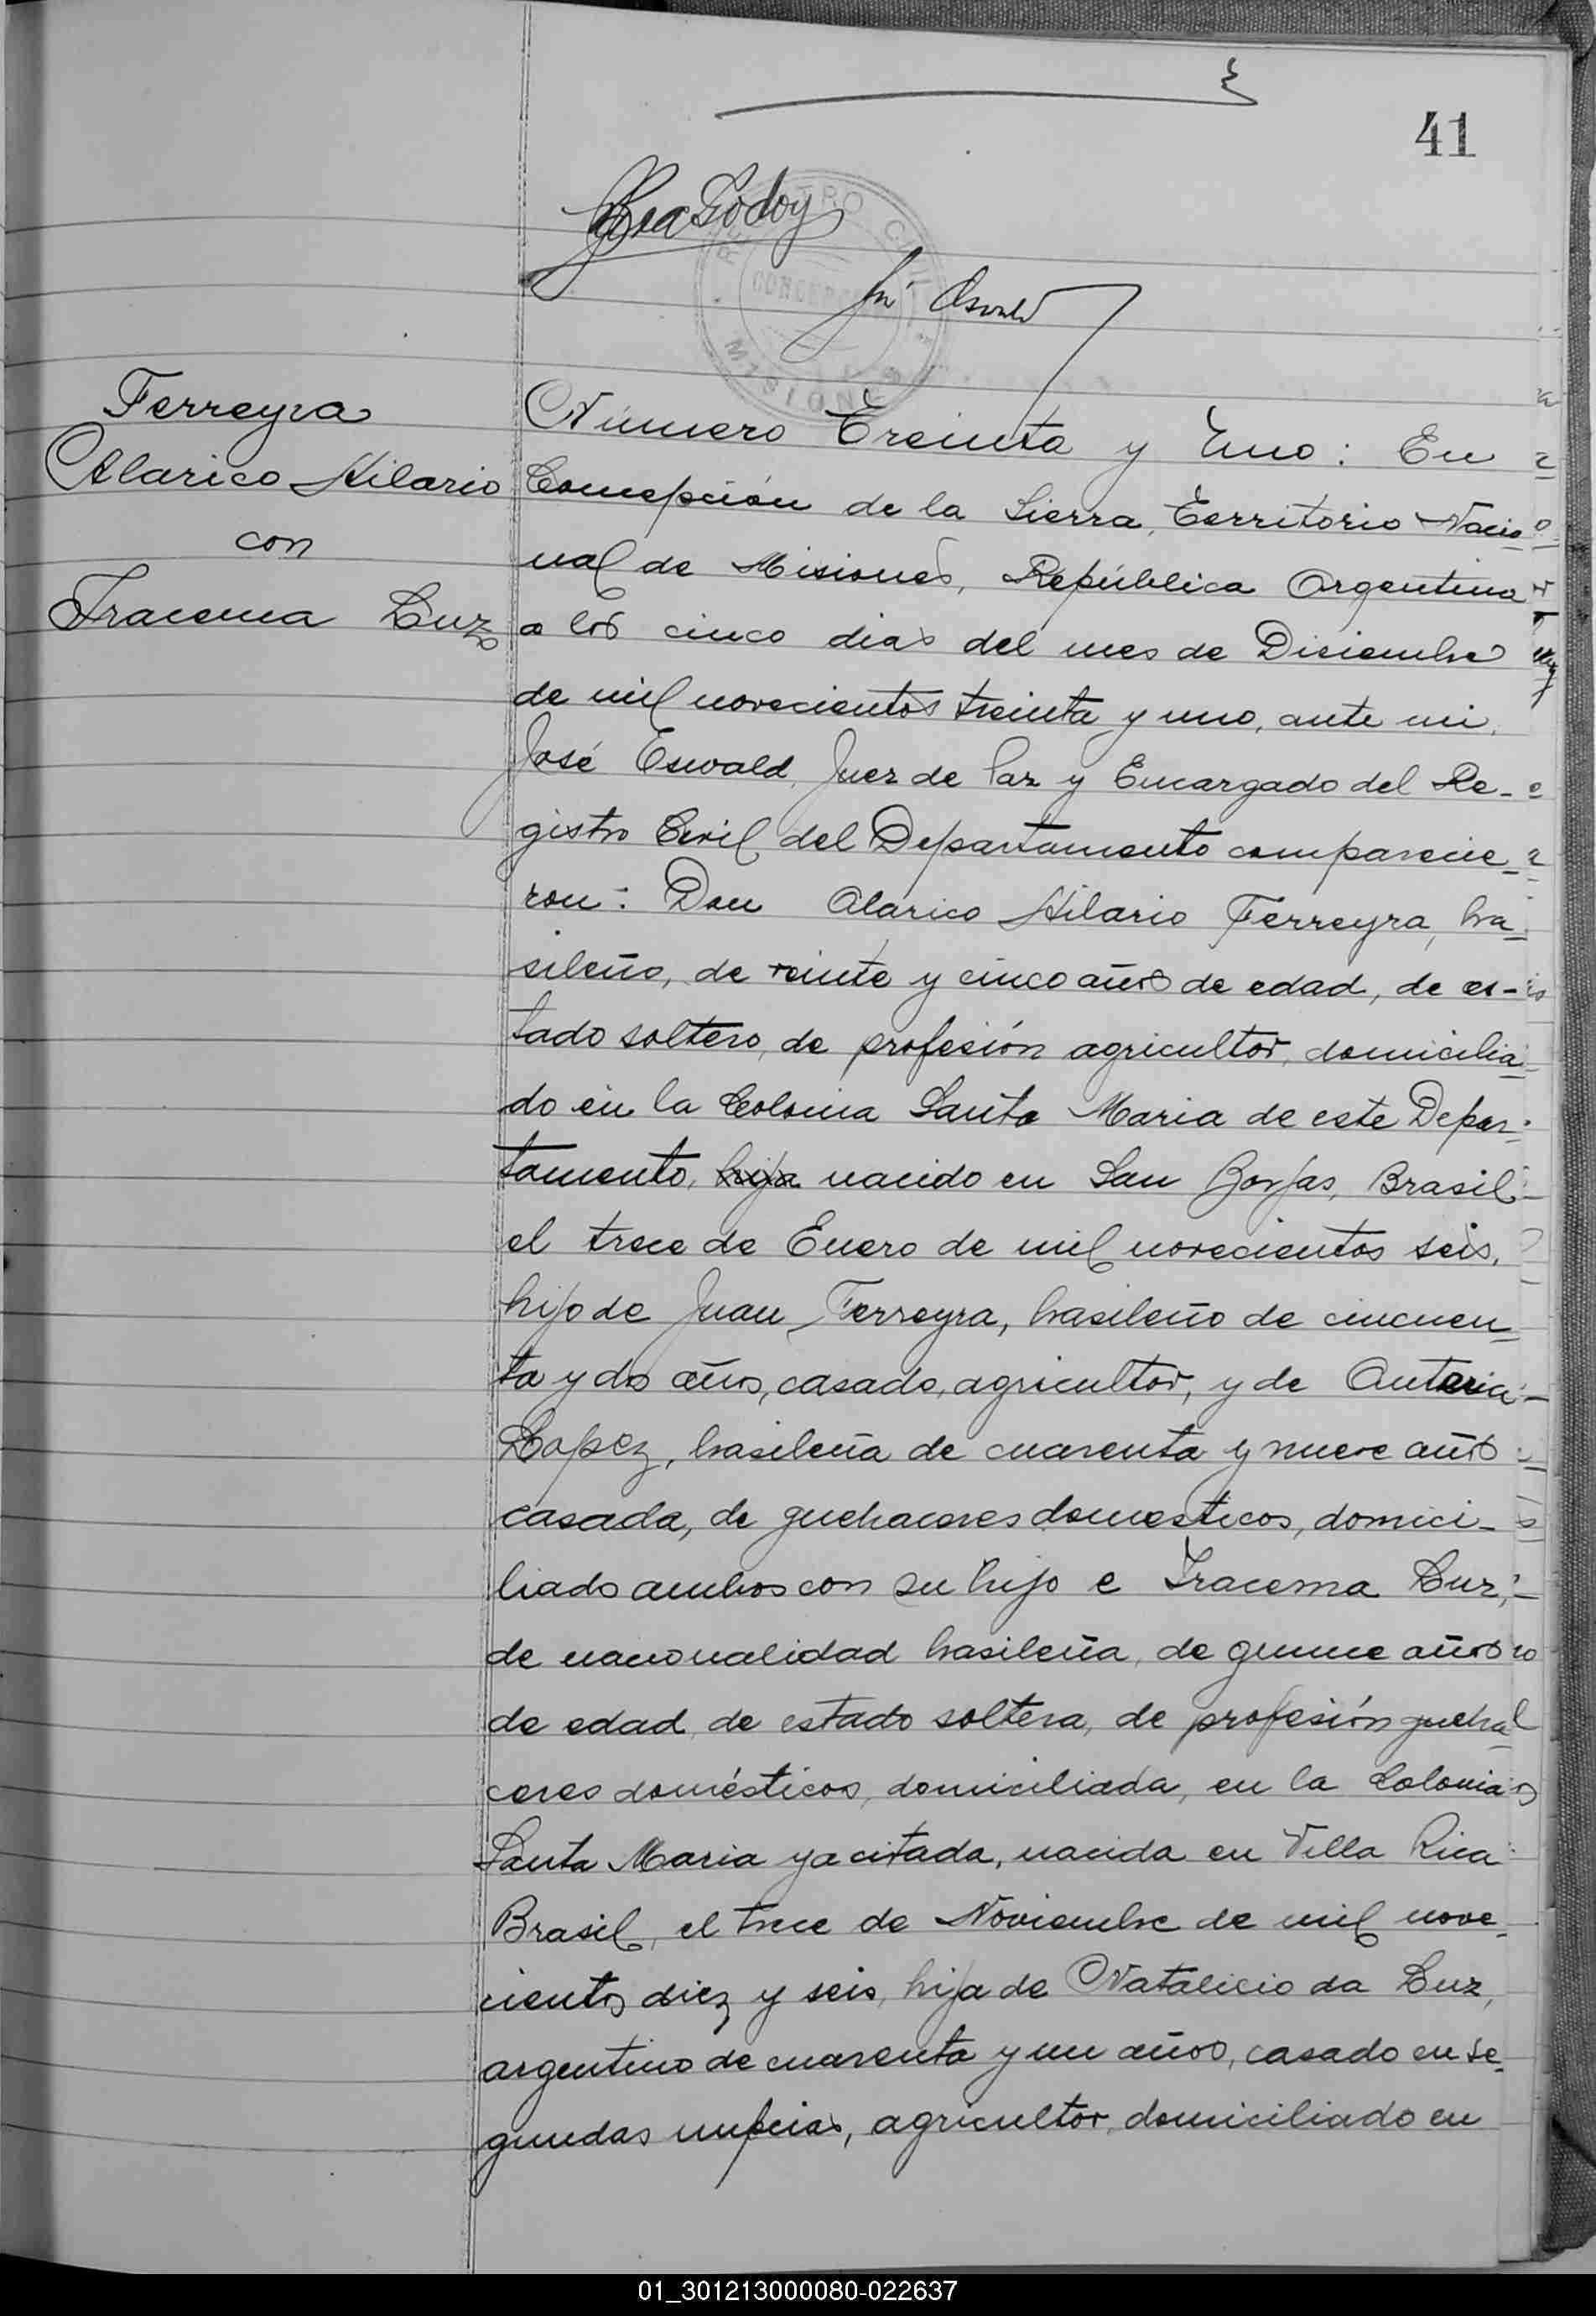 41
REGISTRO CIVIL
CONCEPCION
MISIONES
Godoy
Ferreyra
Alarico Hilario
con
Iracema Luz
Número Treinta y Uno: En
Concepción de la Sierra, Territorio Nacio
nal de Misiones, República Argentina
a los cinco dias del mes de Diciembre
de mil novecientos treinta y uno, ante mi,
José Eswald, Juez de Paz y Encargado del Re-
gistro Civil del Departamento comparecie-
ron: Don Alarico Hilario Ferreyra, bra-
sileño, de veinte y cinco años de edad, de es-
tado soltero, de profesión agricultor, domicilia-
do en la Colonia Santa Maria de este Depar-
tamento, hija nacido en San Borjas, Brasil-
el trece de Enero de mil novecientos seis,
hijo de Juan Ferreyra, brasileño de cincuen-
ta y dos años, casado, agricultor, y de Anteria
Lopez, brasileña de cuarenta y nueve años
casada, de quehaceres domesticos, domici-
liado ambos con su hijo e Iracema Luz,
de nacionalidad brasileña, de quince años
de edad, de estado soltera, de profesión queha
ceres domésticos, domiciliada, en la Colonia
Santa Maria ya citada, nacida en Villa Rica
Brasil, el trece de Noviembre de mil nove-
cientos diez y seis, hija de Natalicio da Luz,
argentino de cuarenta y un años, casado en se-
gundas nupcias, agricultor, domiciliado en
01_301213000080-022637